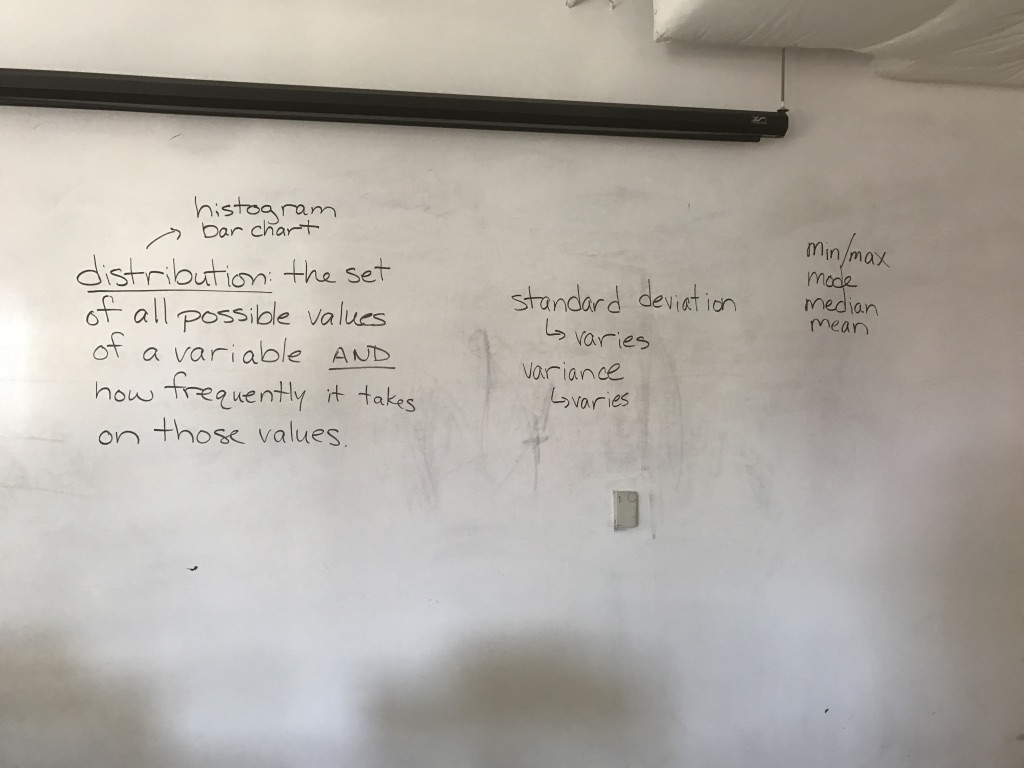 histogram
bar chart
distribution: the set
of all possible values
of a variable AND
how frequently it takes
on those values.
standard deviation
↳ varies
variance
↳ varies
min/max
mode
median
mean